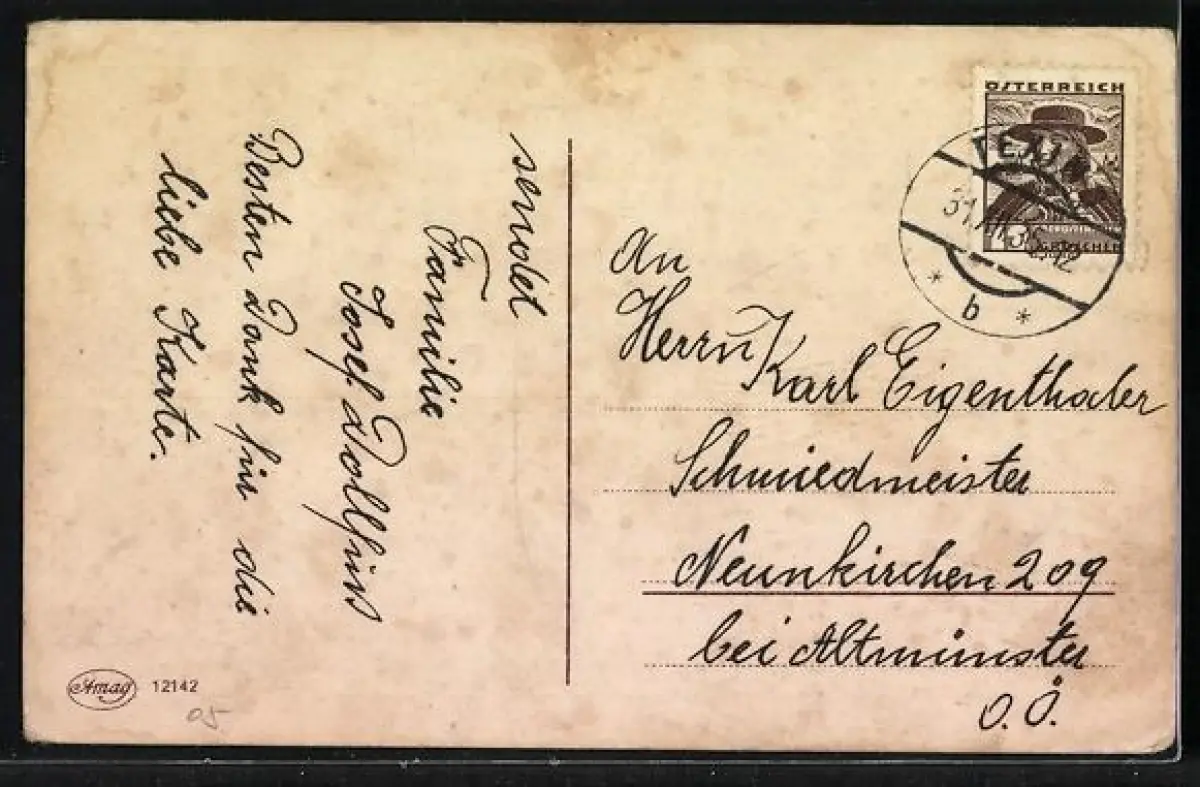 sendet
Familie
Josef Dollfuss
Besten Dank für die
liebe Karte.
An
Herrn Karl Eigenthaler
Schmiedmeister
Neunkirchen 209
bei Altmünster
O. Ö.
ÖSTERREICH
GROSCHEN
31.XII.35 12
* b *
Amag 12142